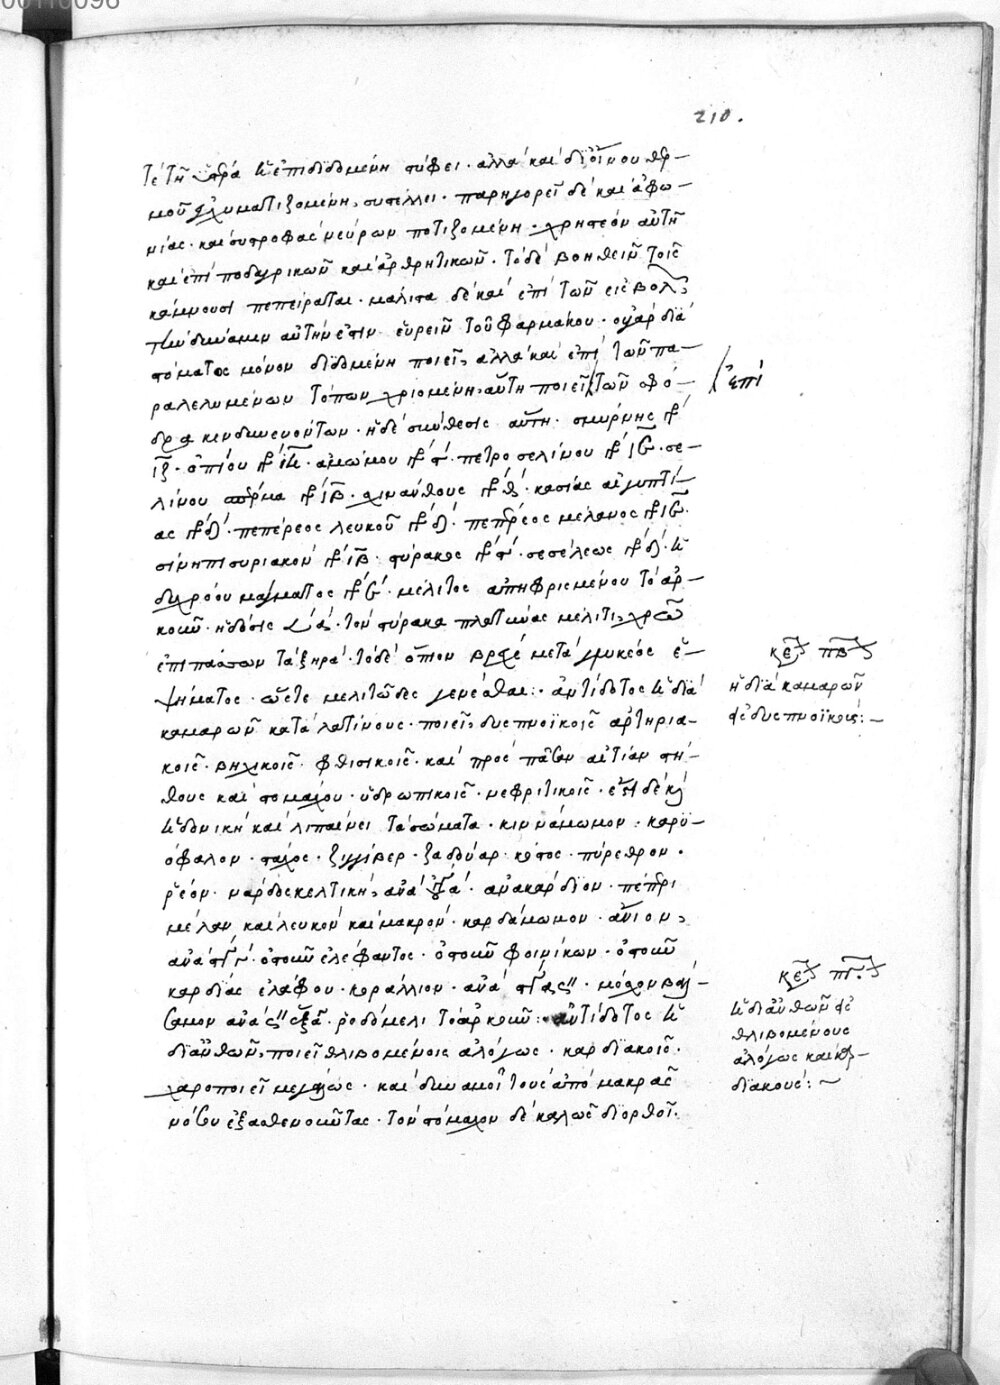 210.
τε τῇ ἕδρᾳ ἢ ἐπιδιδομένη στύφει· ἀλλὰ καὶ δι' οἴνου θερ-
μοῦ κλυματιζομένη, συστέλλει· παρηγορεῖ δὲ καὶ ἀφω-
νίας· καὶ συστροφὰς νεύρων ποτιζομένη· χρηστέον αὐτῇ
καὶ ἐπὶ ποδαγρικῶν καὶ ἀρθρητικῶν· τὸ δὲ βοηθεῖν τοῖς
κάμνουσι πεπείραται· μάλιστα δὲ καὶ ἐπὶ τῶν
τὴν δύναμιν αὐτὴν ἔστιν εὑρεῖν τοῦ φαρμάκου· οὐ γὰρ διὰ
στόματος μόνον διδομένη ποιεῖ, ἀλλὰ καὶ ἐπὶ τῶν πα-
ραλελυμένων τόπων χριομένη· αὕτη ποιεῖ τῶν σφό-
δρα κινδυνευόντων· ἡ δὲ σύνθεσις αὕτη· σμύρνης
ὀπίου ἀμώμου πετροσελίνου σε-
λίνου σπέρμα ιβ· σχινάνθους κασίας αἰγυπτί-
ας πεπέρεος λευκοῦ πεπέρεος μέλανος
σίνηπι συριακὸν ιβ· στύρακος σεσέλεως
μέλιτος ἀπηφρισμένου τὸ ἀρ-
κοῦν· ἡ δόσις τὸν στύρακα μέλιτι, χρῶ
ἐπιπάσσων τὰ ξηρά· τὸ δὲ ὄπιον βρέχε μετὰ γλυκέος ἑ-
ψήματος· ὥστε μελιτῶδες γενέσθαι:· ἀντίδοτος ἡ διὰ
καμαρῶν κατὰ λατίνους· ποιεῖ, δυσπνοϊκοῖς ἀρτηρια-
κοῖς· βηχικοῖς· φθισικοῖς· καὶ πρὸς πᾶσαν αἰτίαν στή-
θους καὶ στομάχου· ὑδρωπικοῖς· νεφριτικοῖς· ἔστι δὲ καὶ
ἡδονικὴ καὶ λιπαίνει τὰ σώματα· κιννάμωμον· καρυ-
όφαλον· στάχος· ζιγγίβερ· ζαδουάρ· κόστος· πύρεθρον·
ῥέον· νάρδος κελτικὴ, ἀνὰ ἀνακάρδιον· πέπερι
μέλαν καὶ λευκὸν καὶ μακρόν· καρδάμωμον· ἄνισον,
ἀνὰ ὀστοῦν ἐλέφαντος· ὀστοῦν φοινίκων· ὀστοῦν
καρδίας ἐλάφου· κοράλλιον· ἀνὰ μόσχον βάλ-
σαμον ἀνὰ ῥοδόμελι τὸ ἀρκοῦν:· ἀντίδοτος ἡ
δι' ἀνθῶν, ποιεῖ θλιβομένοις ἀλόγως· καρδιακοῖς·
χαροποιεῖ μεγάλως· καὶ δυναμοῖ τοὺς ἀπὸ μακρᾶς
νόσου ἐξασθενοῦντας· τὸν στόμαχον δὲ καλῶς διορθοῖ·
ἐπὶ
πβ
ἡ διὰ καμαρῶν
εἰς δυσπνοϊκούς:-
πγ
ἡ δι' ἀνθῶν εἰς
θλιβομένους
ἀλόγως καὶ καρ-
διακούς:~